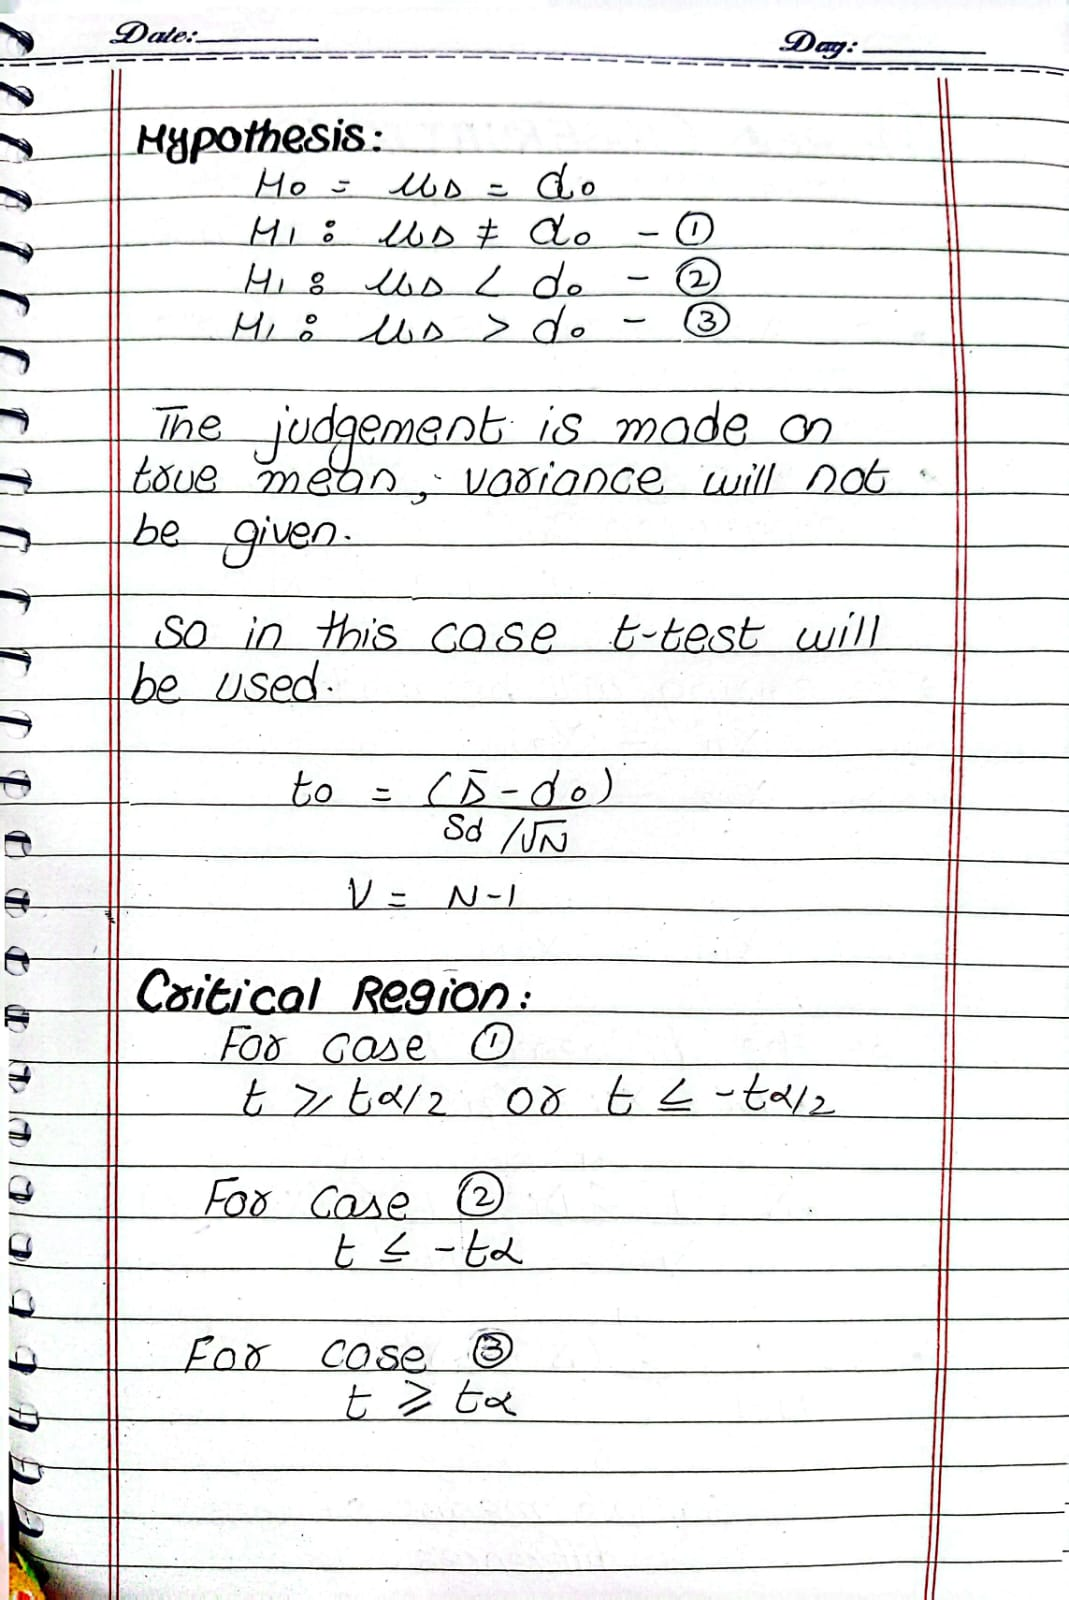 Date:
Day:
Hypothesis:
H₀ = μD = d₀
H₁ : μD ≠ d₀ - ①
H₁ : μD < d₀ - ②
H₁ : μD > d₀ - ③
The judgement is made on
true mean, variance will not
be given.
So in this case t-test will
be used.
t₀ = (D̄ - d₀)
Sd /√N
V = N-1
Critical Region:
For case ①
t ⩾ tα/2 or t ≤ -tα/2
For case ②
t ≤ -tα
For case ③
t ⩾ tα